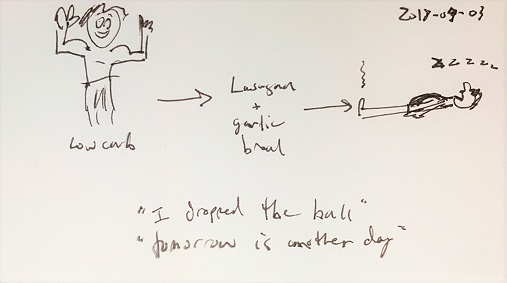 2017-09-03
zzzzz
Low carb
Lasagna
+
garlic
bread
"I dropped the ball"
"tomorrow is another day"